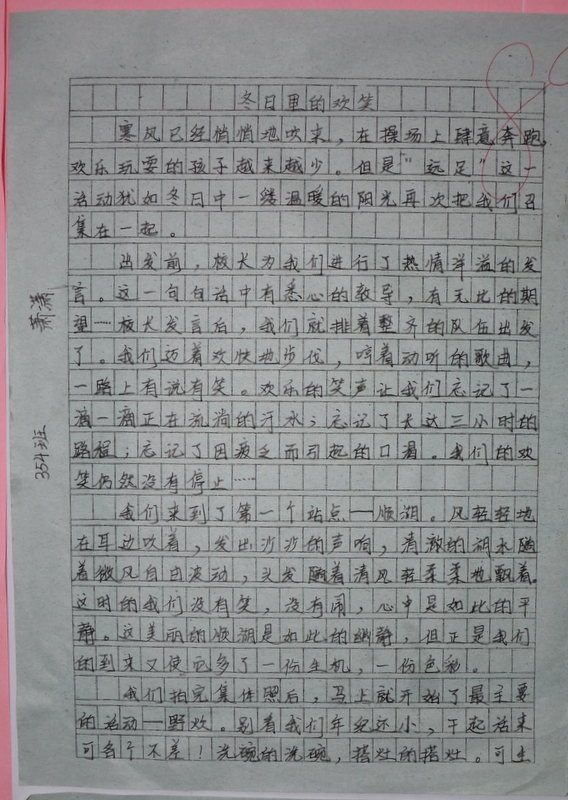 冬日里的欢笑
寒风已经悄悄地吹来，在操场上肆意奔跑，
欢乐玩耍的孩子越来越少。但是"远足"这一
活动犹如冬日中一缕温暖的阳光再次把我们召
集在一起。
出发前，校长为我们进行了热情洋溢的发
言。这一句句话中有悉心的教导，有无比的期
望……校长发言后，我们就排着整齐的队伍出发
了。我们迈着欢快地步伐，哼着动听的歌曲，
一路上有说有笑。欢乐的笑声让我们忘记了一
滴一滴正在流淌的汗水；忘记了长达三小时的
路程；忘记了因疲乏而引起的口渴。我们的欢
笑仍然没有停止……
我们来到了第一个站点——顺湖。风轻轻地
在耳边吹着，发出沙沙的声响，清澈的湖水随
着微风自由波动，头发随着清风轻柔柔地飘着。
这时的我们没有笑，没有闹，心中是如此的平
静。这美丽的顺湖是如此的幽静，但正是我们
的到来又使它多了一份生机，一份色彩。
我们拍完集体照后，马上就开始了最主要
的活动——野炊。别看我们年纪还小，干起活来
可各个不差！洗碗的洗碗，搭灶的搭灶。可生
354班 萧潇